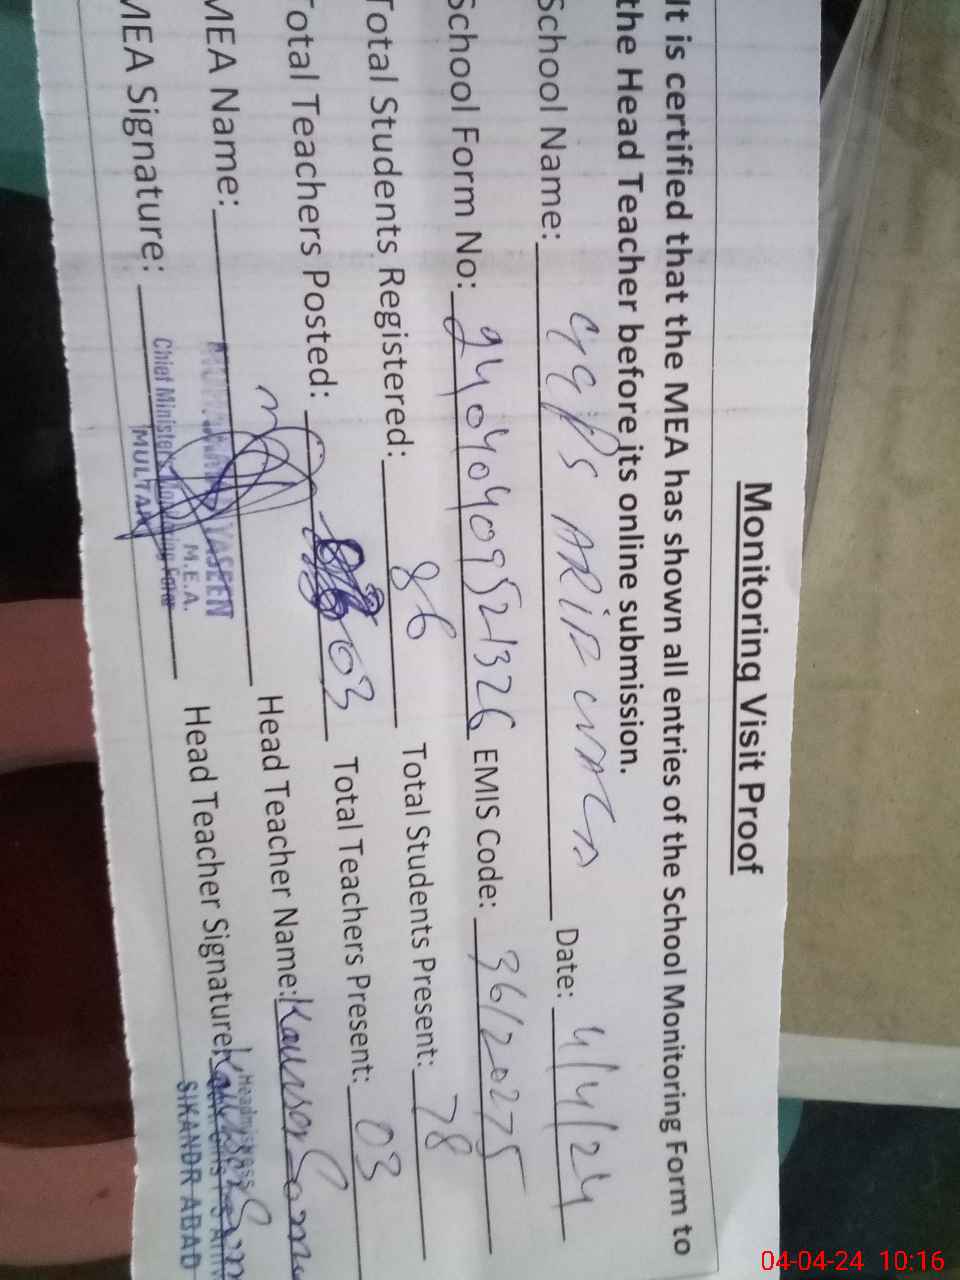 Monitoring Visit Proof
It is certified that the MEA has shown all entries of the School Monitoring Form to
the Head Teacher before its online submission.
School Name: GGPS ARIF WALA Date: 4/4/24
School Form No: 94040409521326 EMIS Code: 36120275
Total Students Registered: 86 Total Students Present: 78
Total Teachers Posted: 03 Total Teachers Present: 03
MEA Name: YASEEN Head Teacher Name: Kausar
M.E.A.
MEA Signature: Chief Minister's Monitoring Force Head Teacher Signature
MULTAN
Headmistress
SIKANDR ABAD
04-04-24 10:16